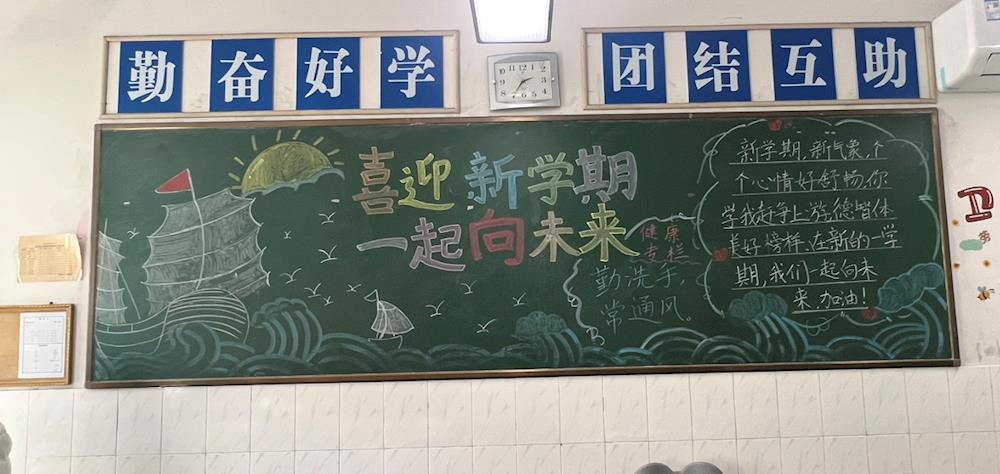 勤奋好学
团结互助
喜迎新学期
一起向未来
健康
专栏
勤洗手,
常通风。
新学期,新气象,个
个心情好舒畅,你
学我赶争上游,德智体
美好榜样,在新的一学
期,我们一起向未
来,加油!
卫